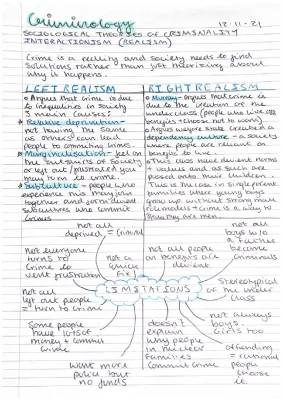 Criminology
17-11-21
SOCIOLOGICAL THEORIES OF CRIMINALITY
INTERACTIONISM (REALISM)
Crime is a reality and society needs to find
solutions rather than just theorizing about
why it happens.
LEFT REALISM
• Argues that crime is due
to inequalities in society
3 main causes:
• Relative deprivation -
not having the same
as others can lead
people to committing crimes.
• Marginalisation - feel on
the outskirts of society
or left out / frustrated you
may turn to crime.
• Subculture - people who
experience this may join
together and form deviant
subcultures who commit
crimes
RIGHT REALISM
• Murray - argues that crime is
due to the creation of the
under class (people who live off
benefits + choose not to work)
• Argues welfare state created a
dependency culture - a society
where people are reliant on
benefits to live.
• This class have deviant norms
+ values and as such are
passed onto their children.
This is the case in single parent
families where young boys
grow up without strong male
role models + crime is a way to
show they are men.
LIMITATIONS
not all
deprived = criminal
Not everyone
turns to
crime to
vent frustration
not a
quick
fix
not all
left out people
= turn to crime
Some people
have lots of
money + commit
crime
want more
police but
no funds
not all people
on benefits are
deviant
not all
boys w/o
a father
become
criminals
Stereotypical
of the under
class
not always
boys
girls too
doesn't
explain
why people
in nuclear
families
commit crime
offending
= rational
people
choose
it